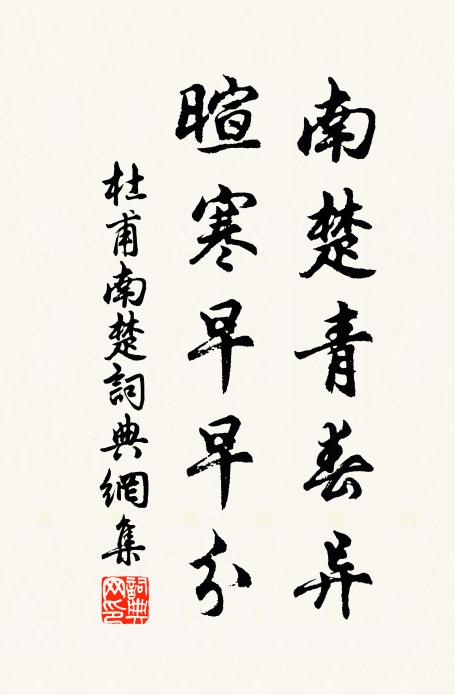 南楚青春异
暄寒早早分
杜甫南楚詞典網集
詞典网印